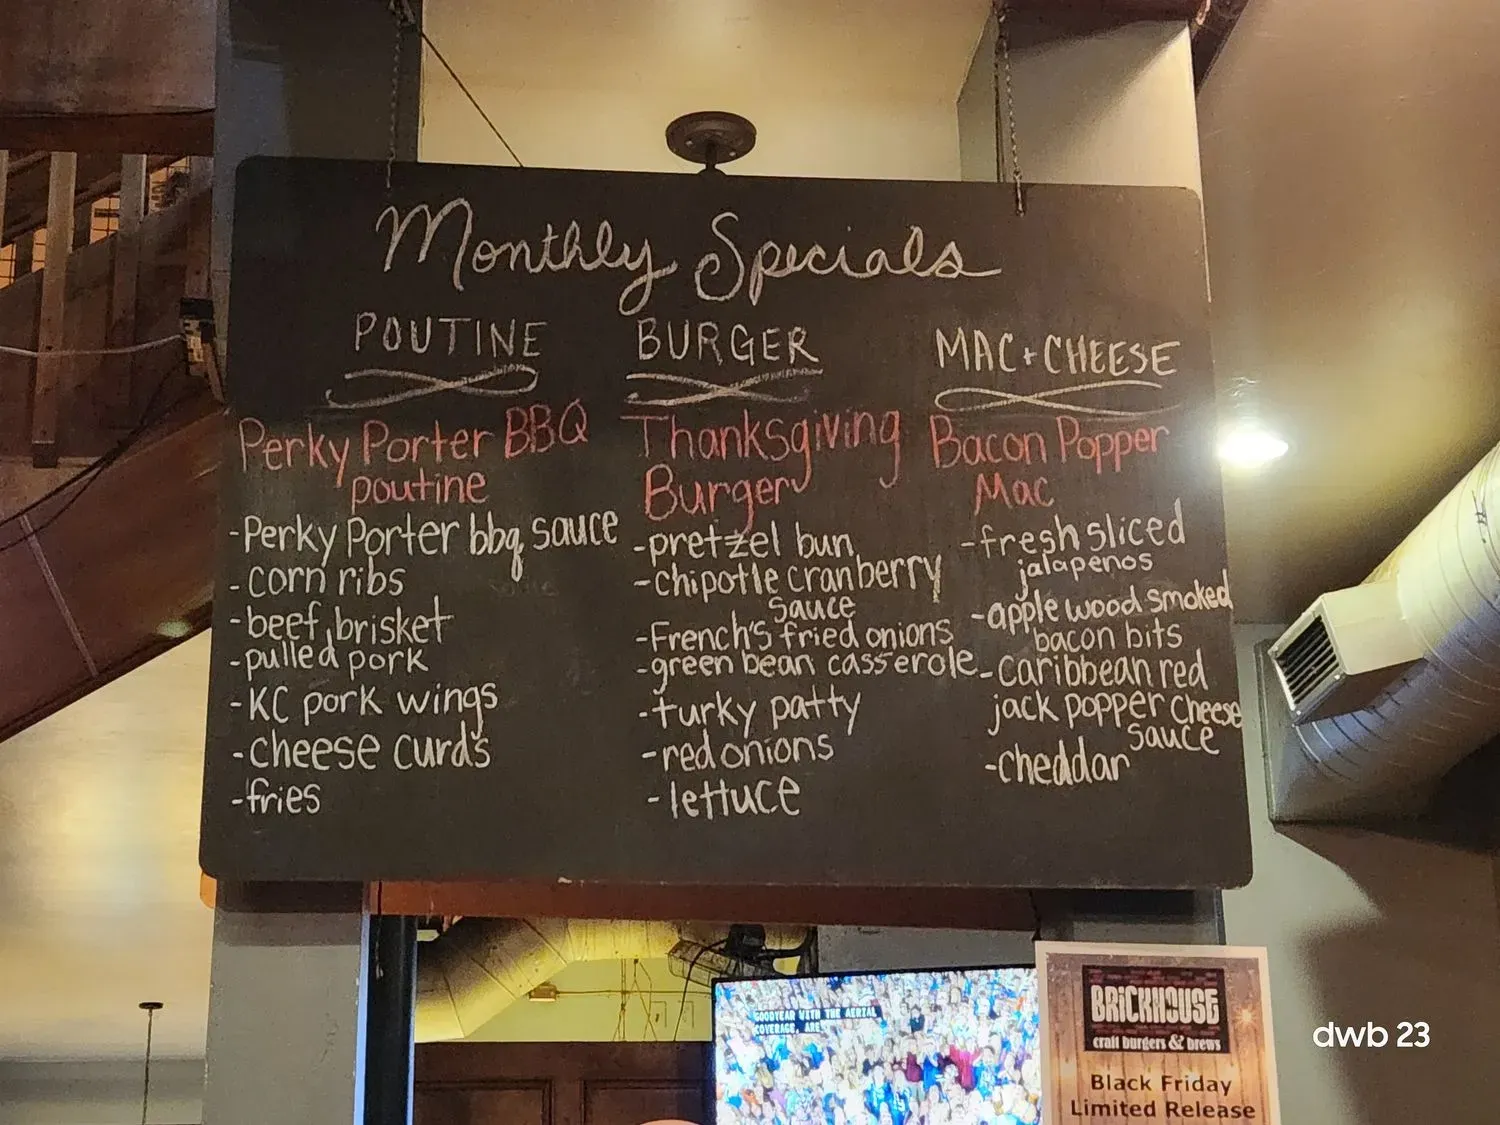 Monthly Specials
POUTINE
Perky Porter BBQ
poutine
-Perky Porter bbq sauce
-corn ribs
-beef brisket
-pulled pork
-KC pork wings
-cheese curds
-fries
BURGER
Thanksgiving
Burger
-pretzel bun
-chipotle cranberry
sauce
-French's fried onions
-green bean casserole
-turky patty
-red onions
-lettuce
MAC+CHEESE
Bacon Popper
Mac
-fresh sliced
jalapenos
-apple wood smoked
bacon bits
-caribbean red
jack popper cheese
sauce
-cheddar
GOODYEAR WITH THE AERIAL
COVERAGE. ARE
BRICKHOUSE
craft burgers & brews
Black Friday
Limited Release
dwb 23